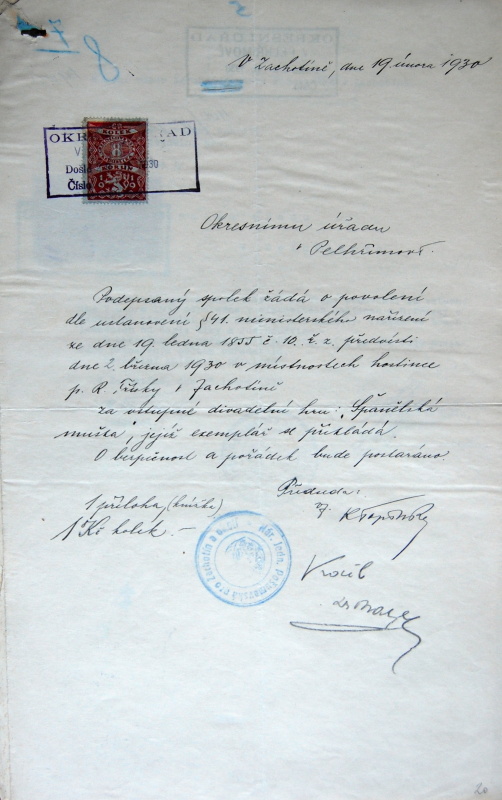 V Zachotíně, dne 19. února 1930
OKRESNÍ ÚŘAD
Došlo 1930
Číslo
KOLEK
8
Okresnímu úřadu
v Pelhřimově.
Podepsaný spolek žádá o povolení
dle ustanovení § 41. ministerského nařízení
ze dne 19 ledna 1855 č. 10. ř. z. předvésti
dne 2. března 1930 v místnostech hostince
p. R. v Zachotíně
za vstupné divadelní hru: "Španělská
muška", jejíž exemplář se přikládá.
O bezpečnost a pořádek bude postaráno
1 příloha (knížka)
1 Kč kolek. –
Předseda:
pro Zachotín a